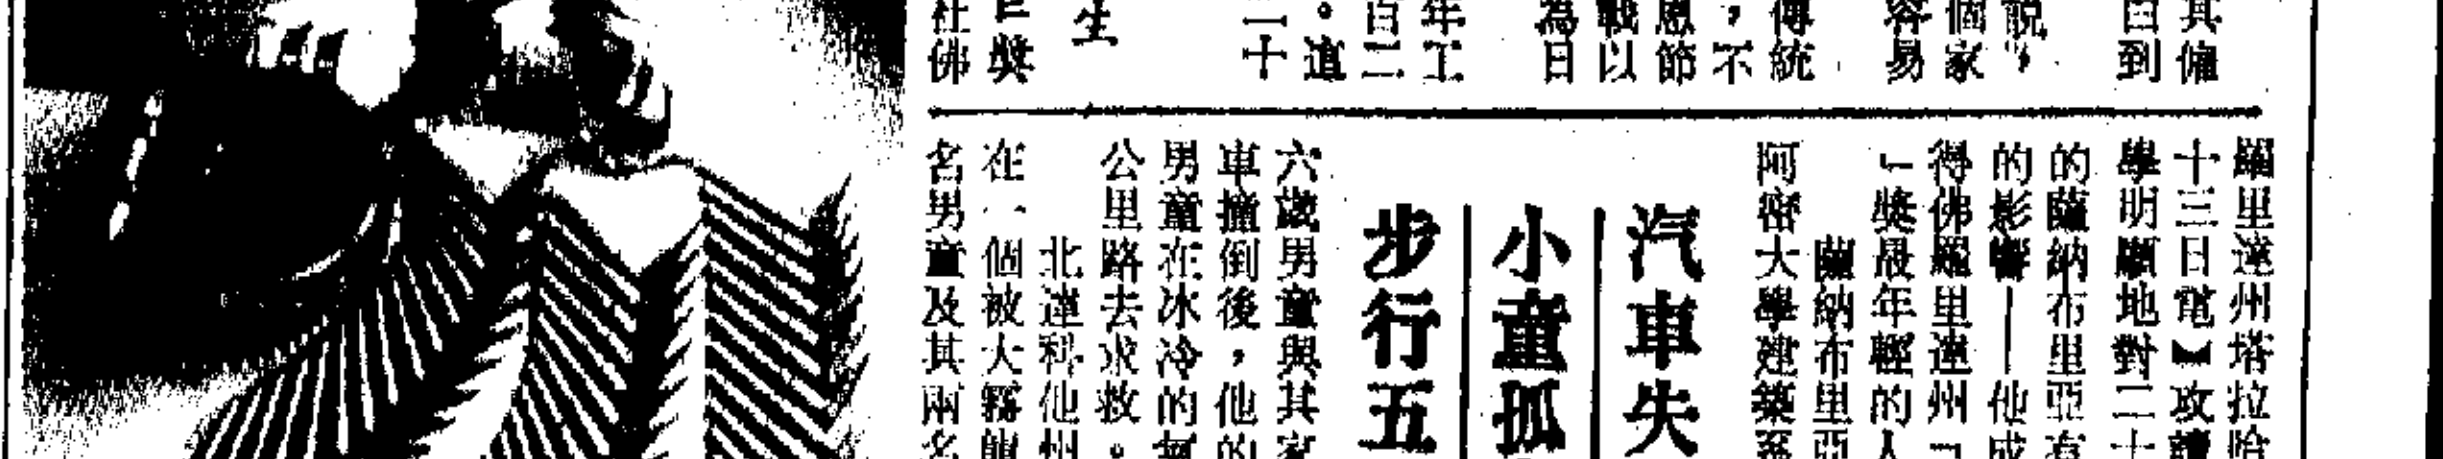 其傭
白到
說，
個家
容易
傳統
，不
恩節
戰以
為日
年工
百二
。這
二十
生
巨獎
杜佛
羅里達州塔拉哈
十三日電】攻讀
學明顯地對二十
的薩納布里亞有
的影響——他成
得佛羅里達州「
」獎最年輕的人
薩納布里亞
阿密大學建築系
汽車失
小童孤
步行五
六歲男童與其家
車撞倒後，他的
男童在冰冷的氣
公里路去求救。
北達科他州
在一個被大霧籠
名男童及其兩名